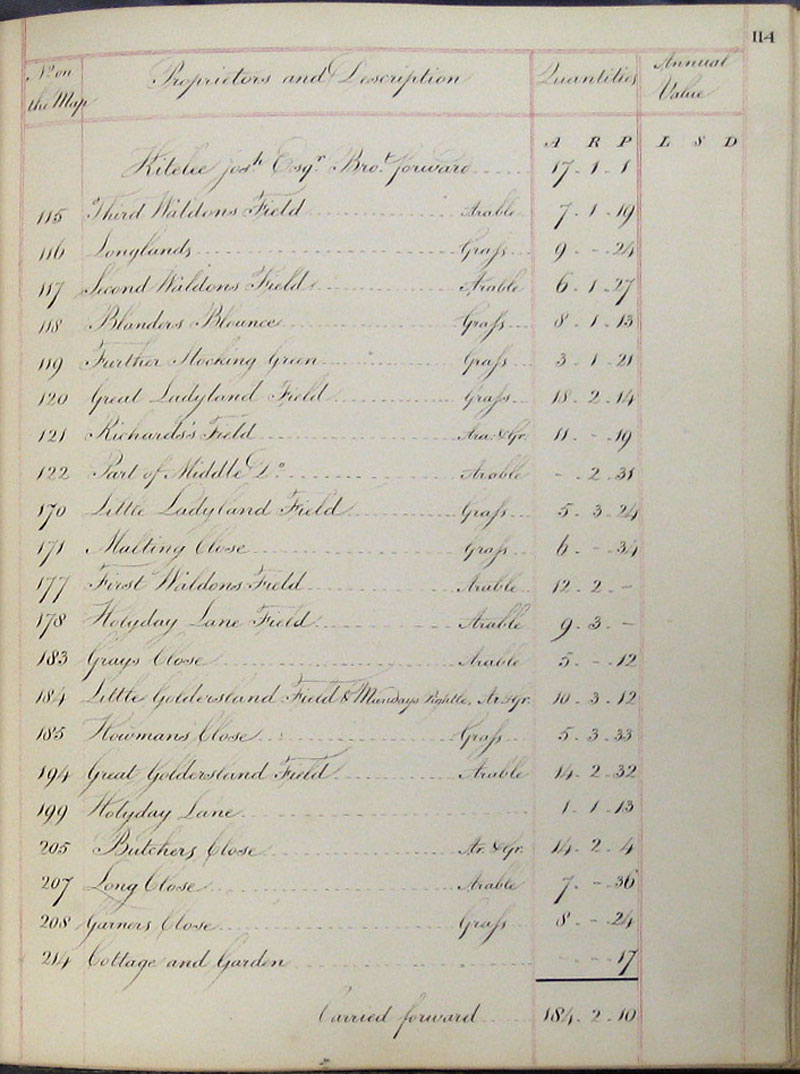 114
No on the Map Proprietors and Description Quantities Annual Value
A R P L S D
Kitelee Josh Esqr Brot forward 17 - 1 - 1
115 Third Waldons Field Arable 7 - 1 - 19
116 Longlands Grass 9 - - - 24
117 Second Waldons Field Arable 6 - 1 - 27
118 Blanders Blounce Grass 8 - 1 - 13
119 Further Stocking Green Grass 3 - 1 - 21
120 Great Ladyland Field Grass 18 - 2 - 14
121 Richards's Field Ara. & Gr. 11 - - - 19
122 Part of Middle Do Arable - - 2 - 31
170 Little Ladyland Field Grass 5 - 3 - 24
171 Malting Close Grass 6 - - - 34
177 First Waldons Field Arable 12 - 2 - -
178 Holyday Lane Field Arable 9 - 3 - -
183 Grays Close Arable 5 - - - 12
184 Little Goldersland Field & Mundays Pightle, Ar. & Gr. 10 - 3 - 12
185 Howmans Close Grass 5 - 3 - 33
194 Great Goldersland Field Arable 14 - 2 - 32
199 Holyday Lane 1 - 1 - 13
205 Butchers Close Ar. & Gr. 14 - 2 - 4
207 Long Close Arable 7 - - - 36
208 Garners Close Grass 8 - - - 24
214 Cottage and Garden - - - - 17
Carried forward 184 - 2 - 10